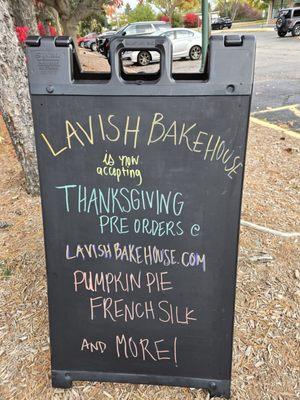 LAVISH BAKEHOUSE
is now
accepting
THANKSGIVING
PRE ORDERS @
LAVISHBAKEHOUSE.COM
PUMPKIN PIE
FRENCH SILK
AND MORE!